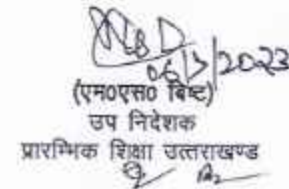 06/7/2023
(एम०एस० बिष्ट)
उप निदेशक
प्रारम्भिक शिक्षा उत्तराखण्ड